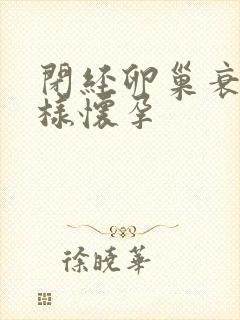 閉經卵巢衰
樣懷孕
徐曉華